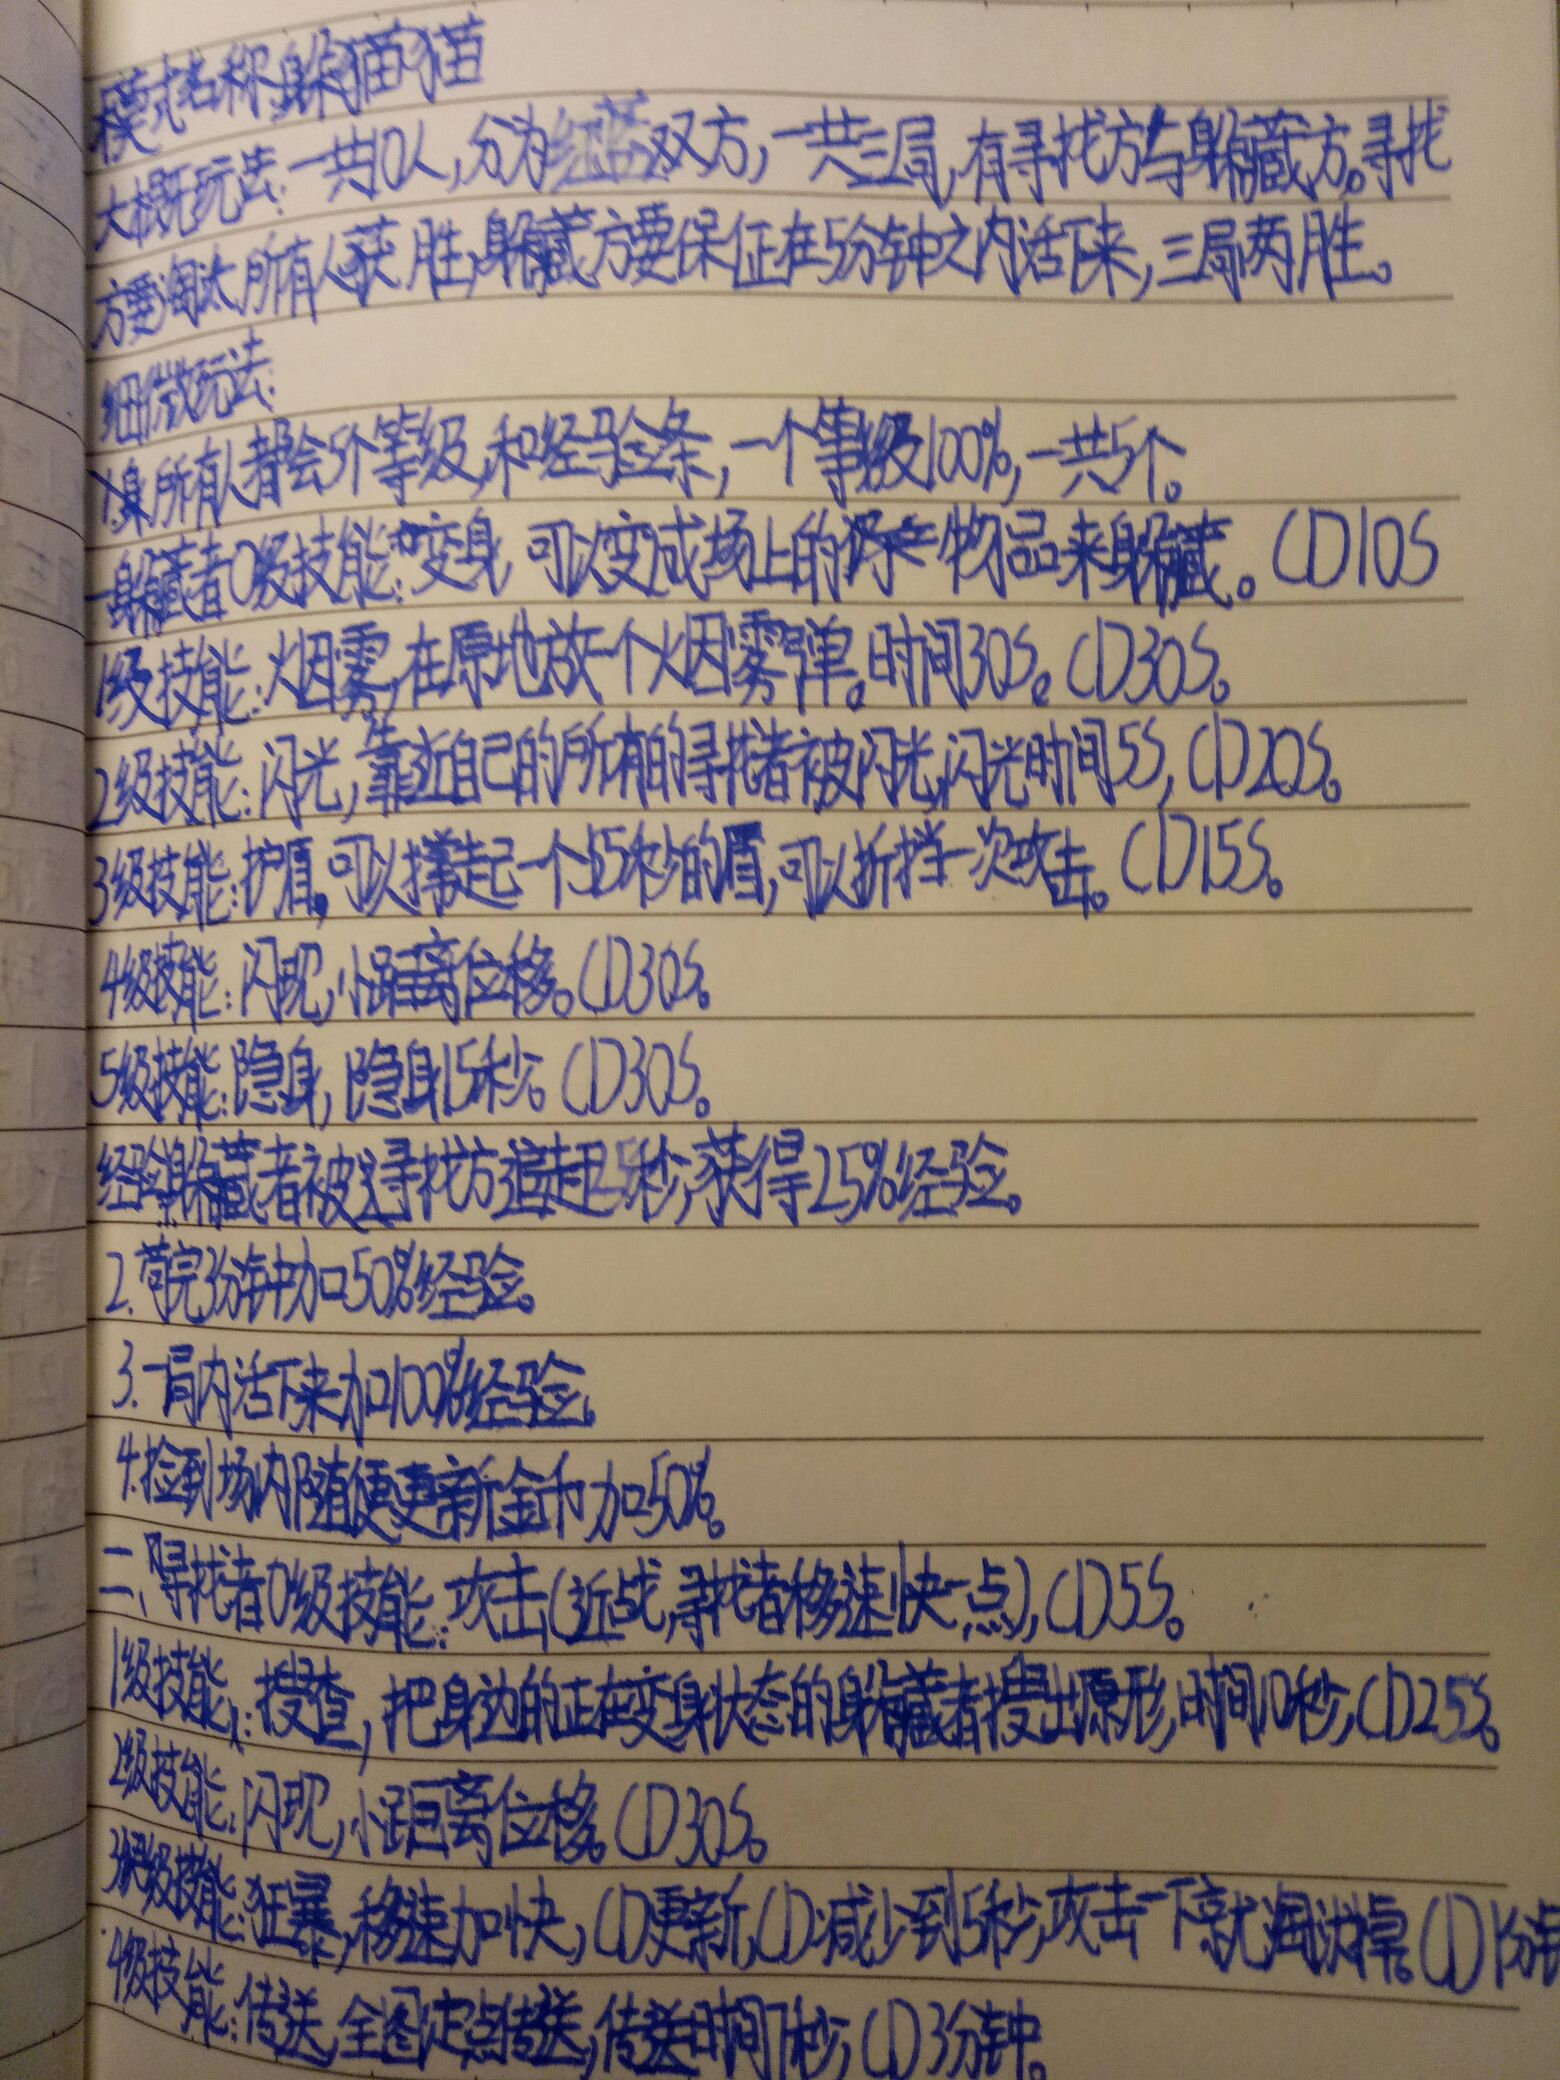 模式名称:躲猫猫
大概玩法:一共10人,分为红蓝双方,一共三局,有寻找方与躲藏方。寻找
方要淘汰所有人获胜,躲藏方要保证在5分钟之内活下来,三局两胜。
细微玩法:
1.所有人都会5个等级,和经验条,一个等级100%,一共5个。
一躲藏者0级技能:变身,可以变成场上的 物品来躲藏。CD10S
1级技能:烟雾,在原地放一个烟雾弹。时间30S。CD30S。
2级技能:闪光,靠近自己的所有的寻找者被闪光,闪光时间5S,CD20S。
3级技能:护盾,可以撑起一个15秒的盾,可以折挡一次攻击。CD15S。
4级技能:闪现,小距离位移。CD30S。
5级技能:隐身,隐身15秒。CD30S。
经验躲藏者被寻找方追赶25秒,获得25%经验。
2.苟完3分钟加50%经验。
3.一局内活下来加100%经验。
4.捡到场内随便更新金币加50%。
二、寻找者0级技能:攻击(近战,寻找者移速快一点),CD5S。
1级技能:搜查,把身边的正在变身状态的躲藏者搜出原形,时间10秒,CD25S。
2级技能:闪现,小距离位移。CD30S。
3级技能:狂暴,移速加快,CD更新,CD减少到5秒,攻击一下就淘汰掉。CD1分钟
4级技能:传送,全图定点传送,传送时间7秒,CD3分钟。